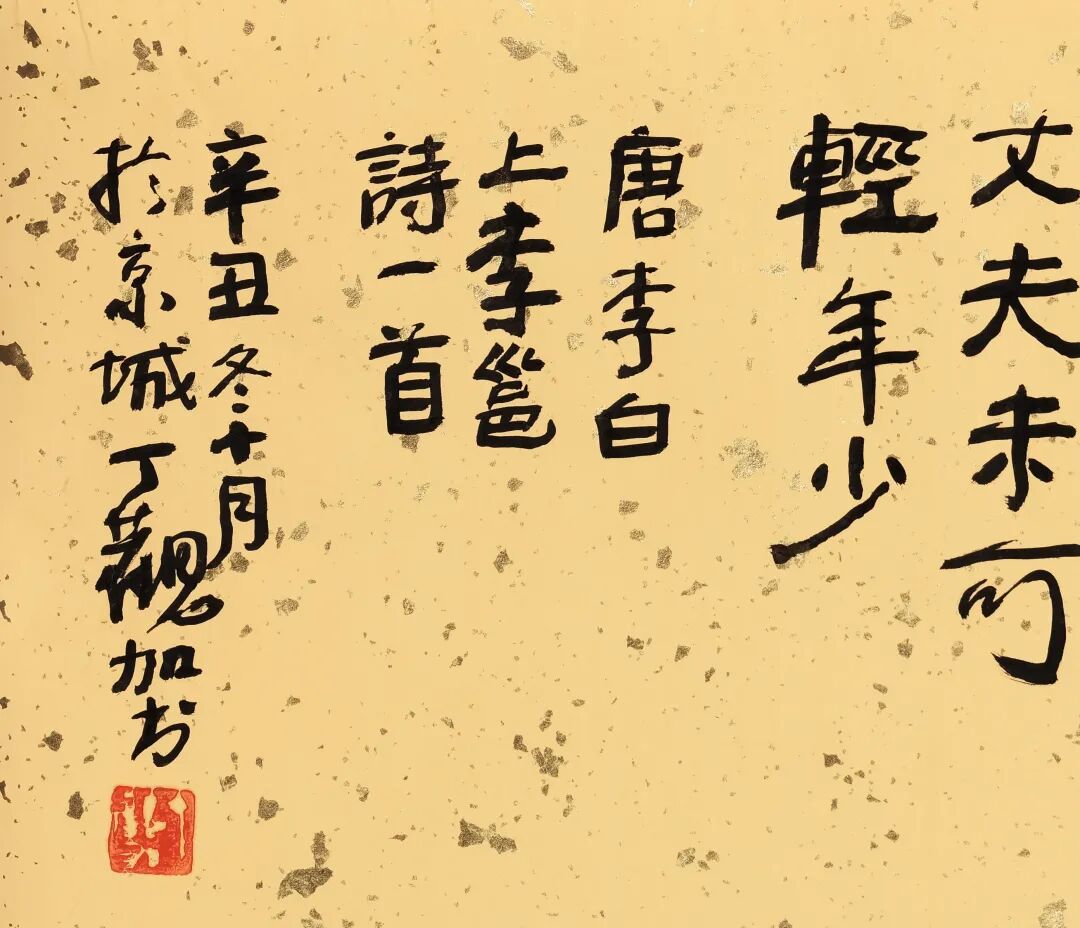 丈夫未可
輕年少
唐李白
上李邕
詩一首
辛丑冬十月
於京城丁觀加书